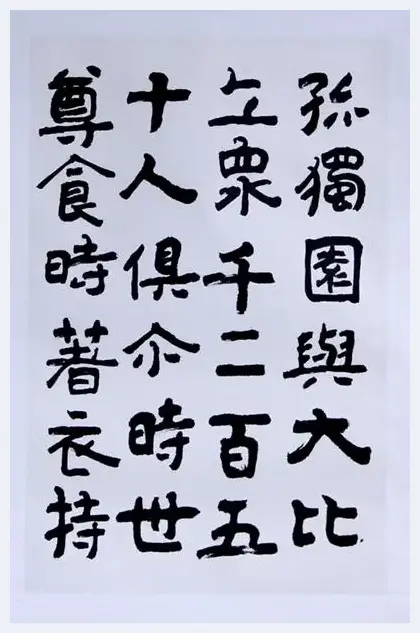 孤獨園與大比
丘眾千二百五
十人俱尒時世
尊食時著衣持